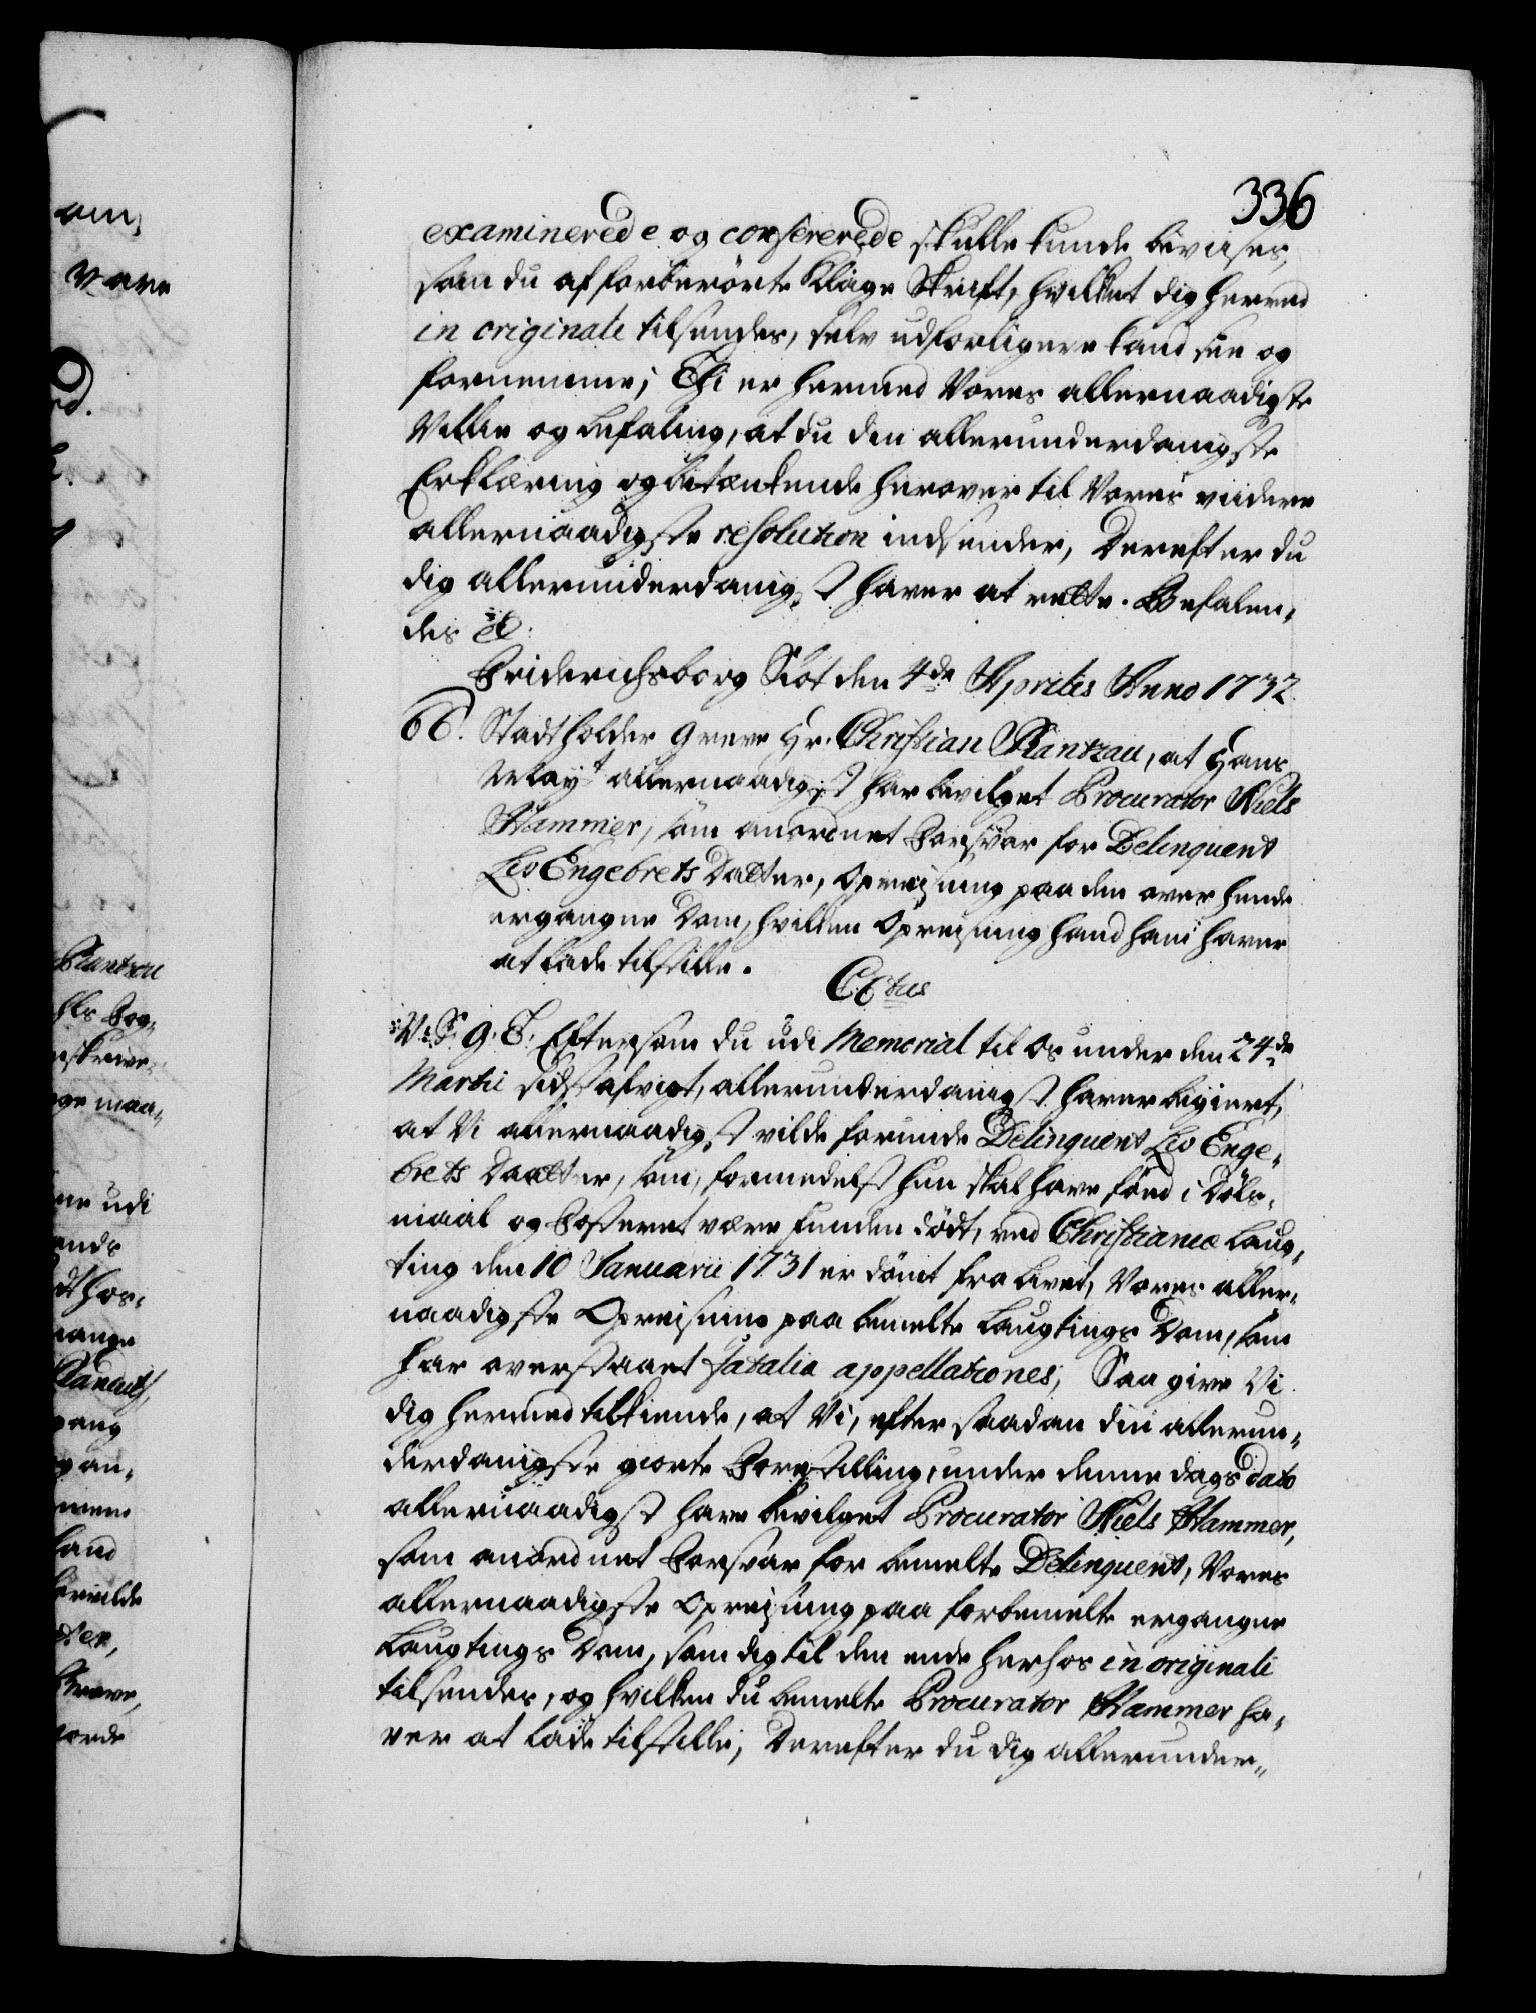 336
examinerede og confererede skulle kunde bevises,
som du af forberörte Klage Skrift, hvilket dig herved
in originali tilsendes, selv udforligere kand see og
fornemme; Thi er hermed Vores allernaadigste
Villie og befaling, at du din allerunderdanigste
Erklæring og betænkende herover til Vores viidere
allernaadigste resolution indsender, Derefter du
dig allerunderdanigst haver at rette. Befalen-
des &c:
Friderichsborg Slot den 4de Aprilis Anno 1732.
66. Stadtholder Greve Hr. Christian Rantzau, at Hans
Mayt allernaadigst har bevilget Procurator Niels
Hammer, som anordnet Forsvar for Delinquent
Liv Engebrets Datter, Opreisning paa den over hende
ergangne Dom, hvilken Opreisning hand ham haver
at lade tilstille.
C6tus
V. S. G. T. Eftersom du udi Memorial til Os under den 24de
Martii sidstafvigt, allerunderdanigst haver begiert,
at Vi allernaadigst vilde forunde Delinquent Liv Enge-
brets Daatter, som, formedelst hun skal have föed i Döls-
maal og Fosteret være funden dödt, ved Christianiæ Laug-
ting den 10 Januarii 1731 er dömt fra livet, Vores aller-
naadigste Opreisning paa bemelte Laugtings Dom, som
har overstaaet fatalia appellationes, Saa give Vi
dig hermed tilkiende, at Vi, efter saadan din allerun-
derdanigste giorte Forestilling, under denne dags dato
allernaadigst have bevilget Procurator Niels Hammer,
som anordnet Forsvar for bemelte Delinquent, Vores
allernaadigste Opreisning paa forbemelte ergangne
Laugtings Dom, som dig til den ende herhos in originali
tilsendes, og hvilken du bemelte Procurator Hammer ha-
ver at lade tilstille; Derefter du dig allerunder-